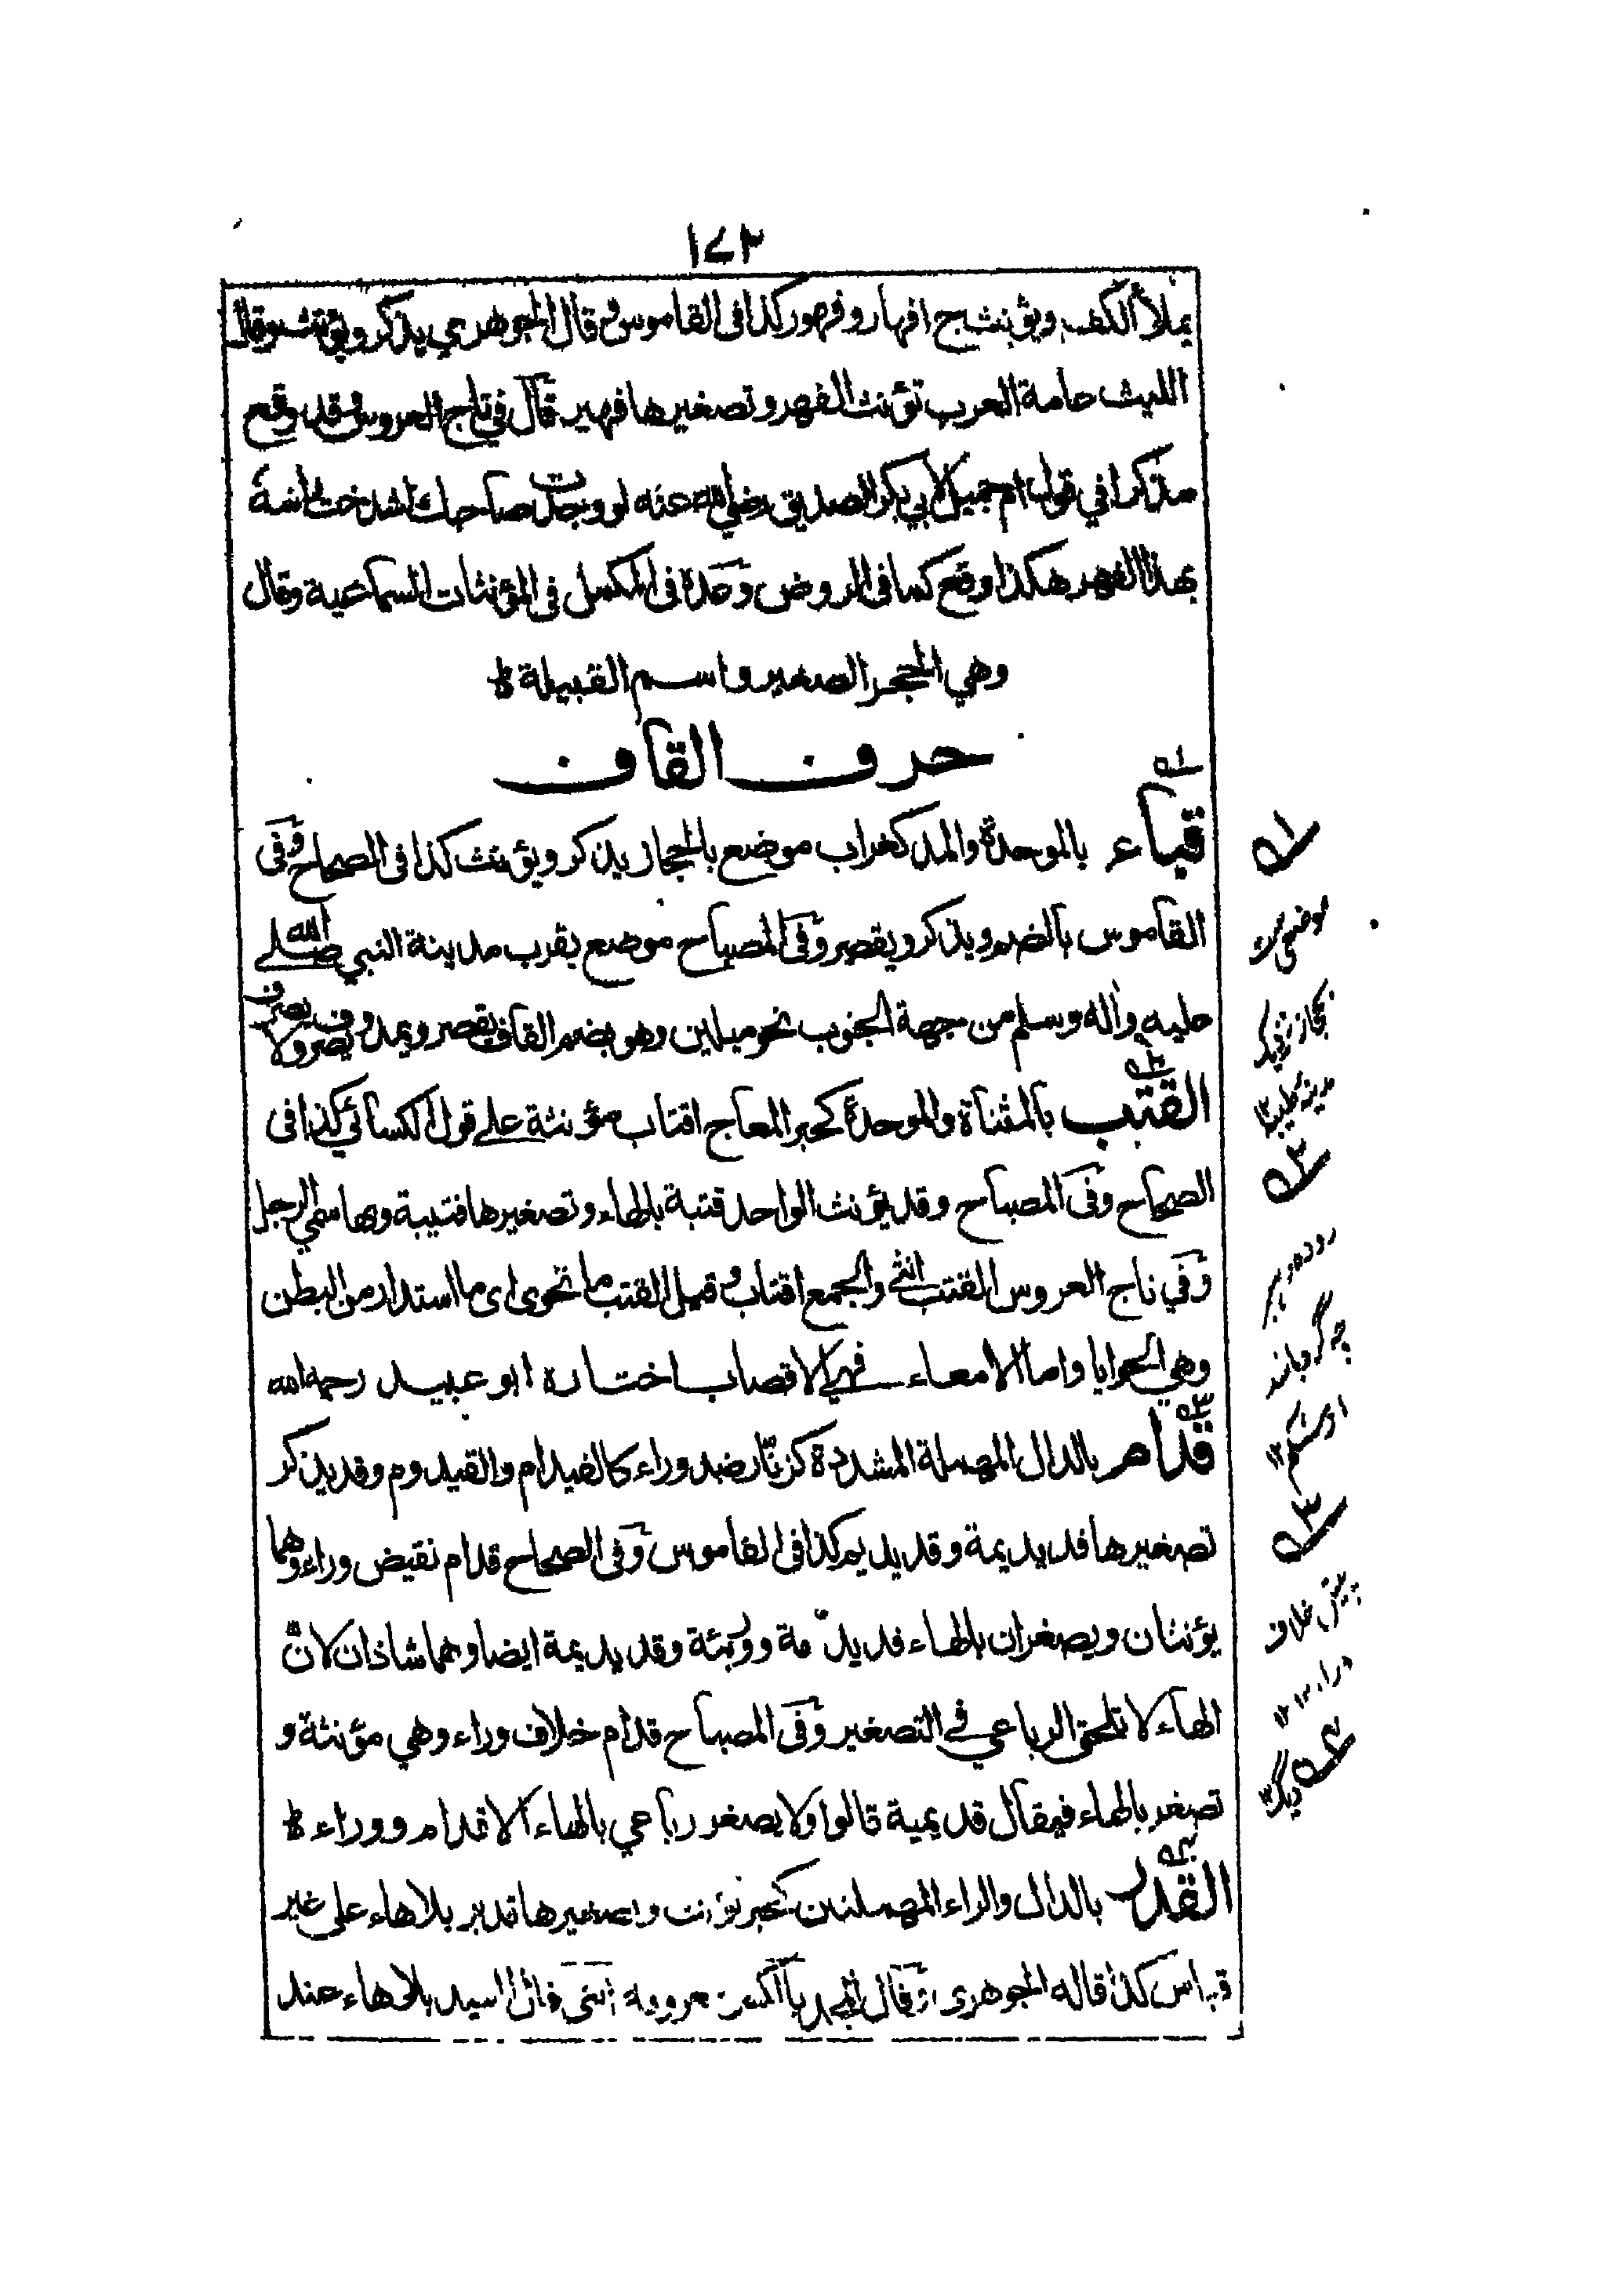 ١٧٣
يملأ الكف ويؤنث ج افهار وفهور كذا فى القاموس و قال الجوهري يذكر ويؤنث وقال
الليث عامة العرب تؤنث الفهر وتصغيرها فهير قال في تاج العروس وقد وقع
مذكرا في قول ام جميل لابي بكر الصديق رضي الله عنه لو وجدت صاحبك لشدخت رأسه
بهذا الفهر هكذا وقع كما فى الروض وعده فى المكمل فى المؤنثات السماعية وقال
وهي الحجر الصغير واسم القبيلة
حرف القاف
قباء بالموحدة والمد كغراب موضع بالحجاز يذكر ويؤنث كذا فى الصحاح وفى
القاموس بالضم ويذكر ويقصر وفى المصباح موضع بقرب مدينة النبي صلى الله
عليه وآله وسلم من جهة الجنوب نحو ميلين وهو بضم القاف يقصر ويمد ويصرف ولا يصرف
القتب بالمثناة والموحدة كحبر المعاج اقتاب مؤنثة على قول الكسائي كذا فى
الصحاح وفى المصباح وقد يؤنث الواحد قتبة بالهاء وتصغيرها قتيبة وبها سمي الرجل
وفي تاج العروس القتب انثى والجمع اقتاب وقيل القتب ما تحوى اى ما استدار من البطن
وهي الحوايا واما الامعاء فهي الاقصاب اختاره ابو عبيد رحمه الله
قدام بالدال المهملة المشددة كزنار ضد وراء كالقيدام والقيدوم وقد يذكر
تصغيرها قديديمة وقديديم كذا فى القاموس وفى الصحاح قدام نقيض وراء وهما
يؤنثان ويصغران بالهاء قديدمة ووريئة وقديديمة ايضا وهما شاذان لان
الهاء لا تلحق الرباعي في التصغير وفى المصباح قدام خلاف وراء وهي مؤنثة و
تصغر بالهاء فيقال قديمية قالوا ولا يصغر رباعي بالهاء الا قدام ووراء
القدر بالدال والراء المهملتين كحبر تؤنث وتصغيرها قدير بلا هاء على غير
قياس كذا قاله الجوهرى وقال المجد بالكسر معروفة انثى قال السيد بلا هاء عند
١
موضعى ست
بحجاز نزديک
مدينه طيبه ١٢
٢
روده هر
چه گرد باشد
از شکم ١٢
٣
پيش خلاف
وراء ١٢
٤
ديگ ١٢